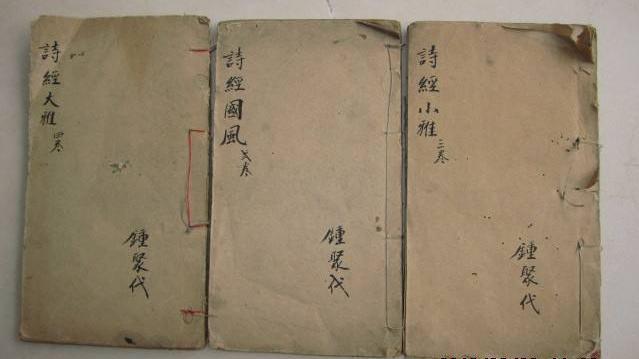 詩經大雅 四卷
鍾聚代
詩經國風 弍卷
鍾聚代
詩經小雅 三卷
鍾聚代